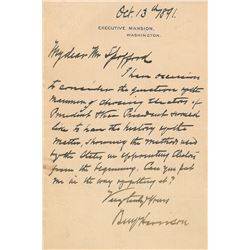 Oct. 13th 1891.
EXECUTIVE MANSION,
WASHINGTON.
My dear Mr Spofford
I have occasion
to consider the question of the
manner of choosing electors of
President & Vice President & would
like to have the history of the
matter, showing the methods used
by the States, in appointing electors
from the beginning. Can you put
me in the way of getting it?
Very truly Yours
Benj Harrison